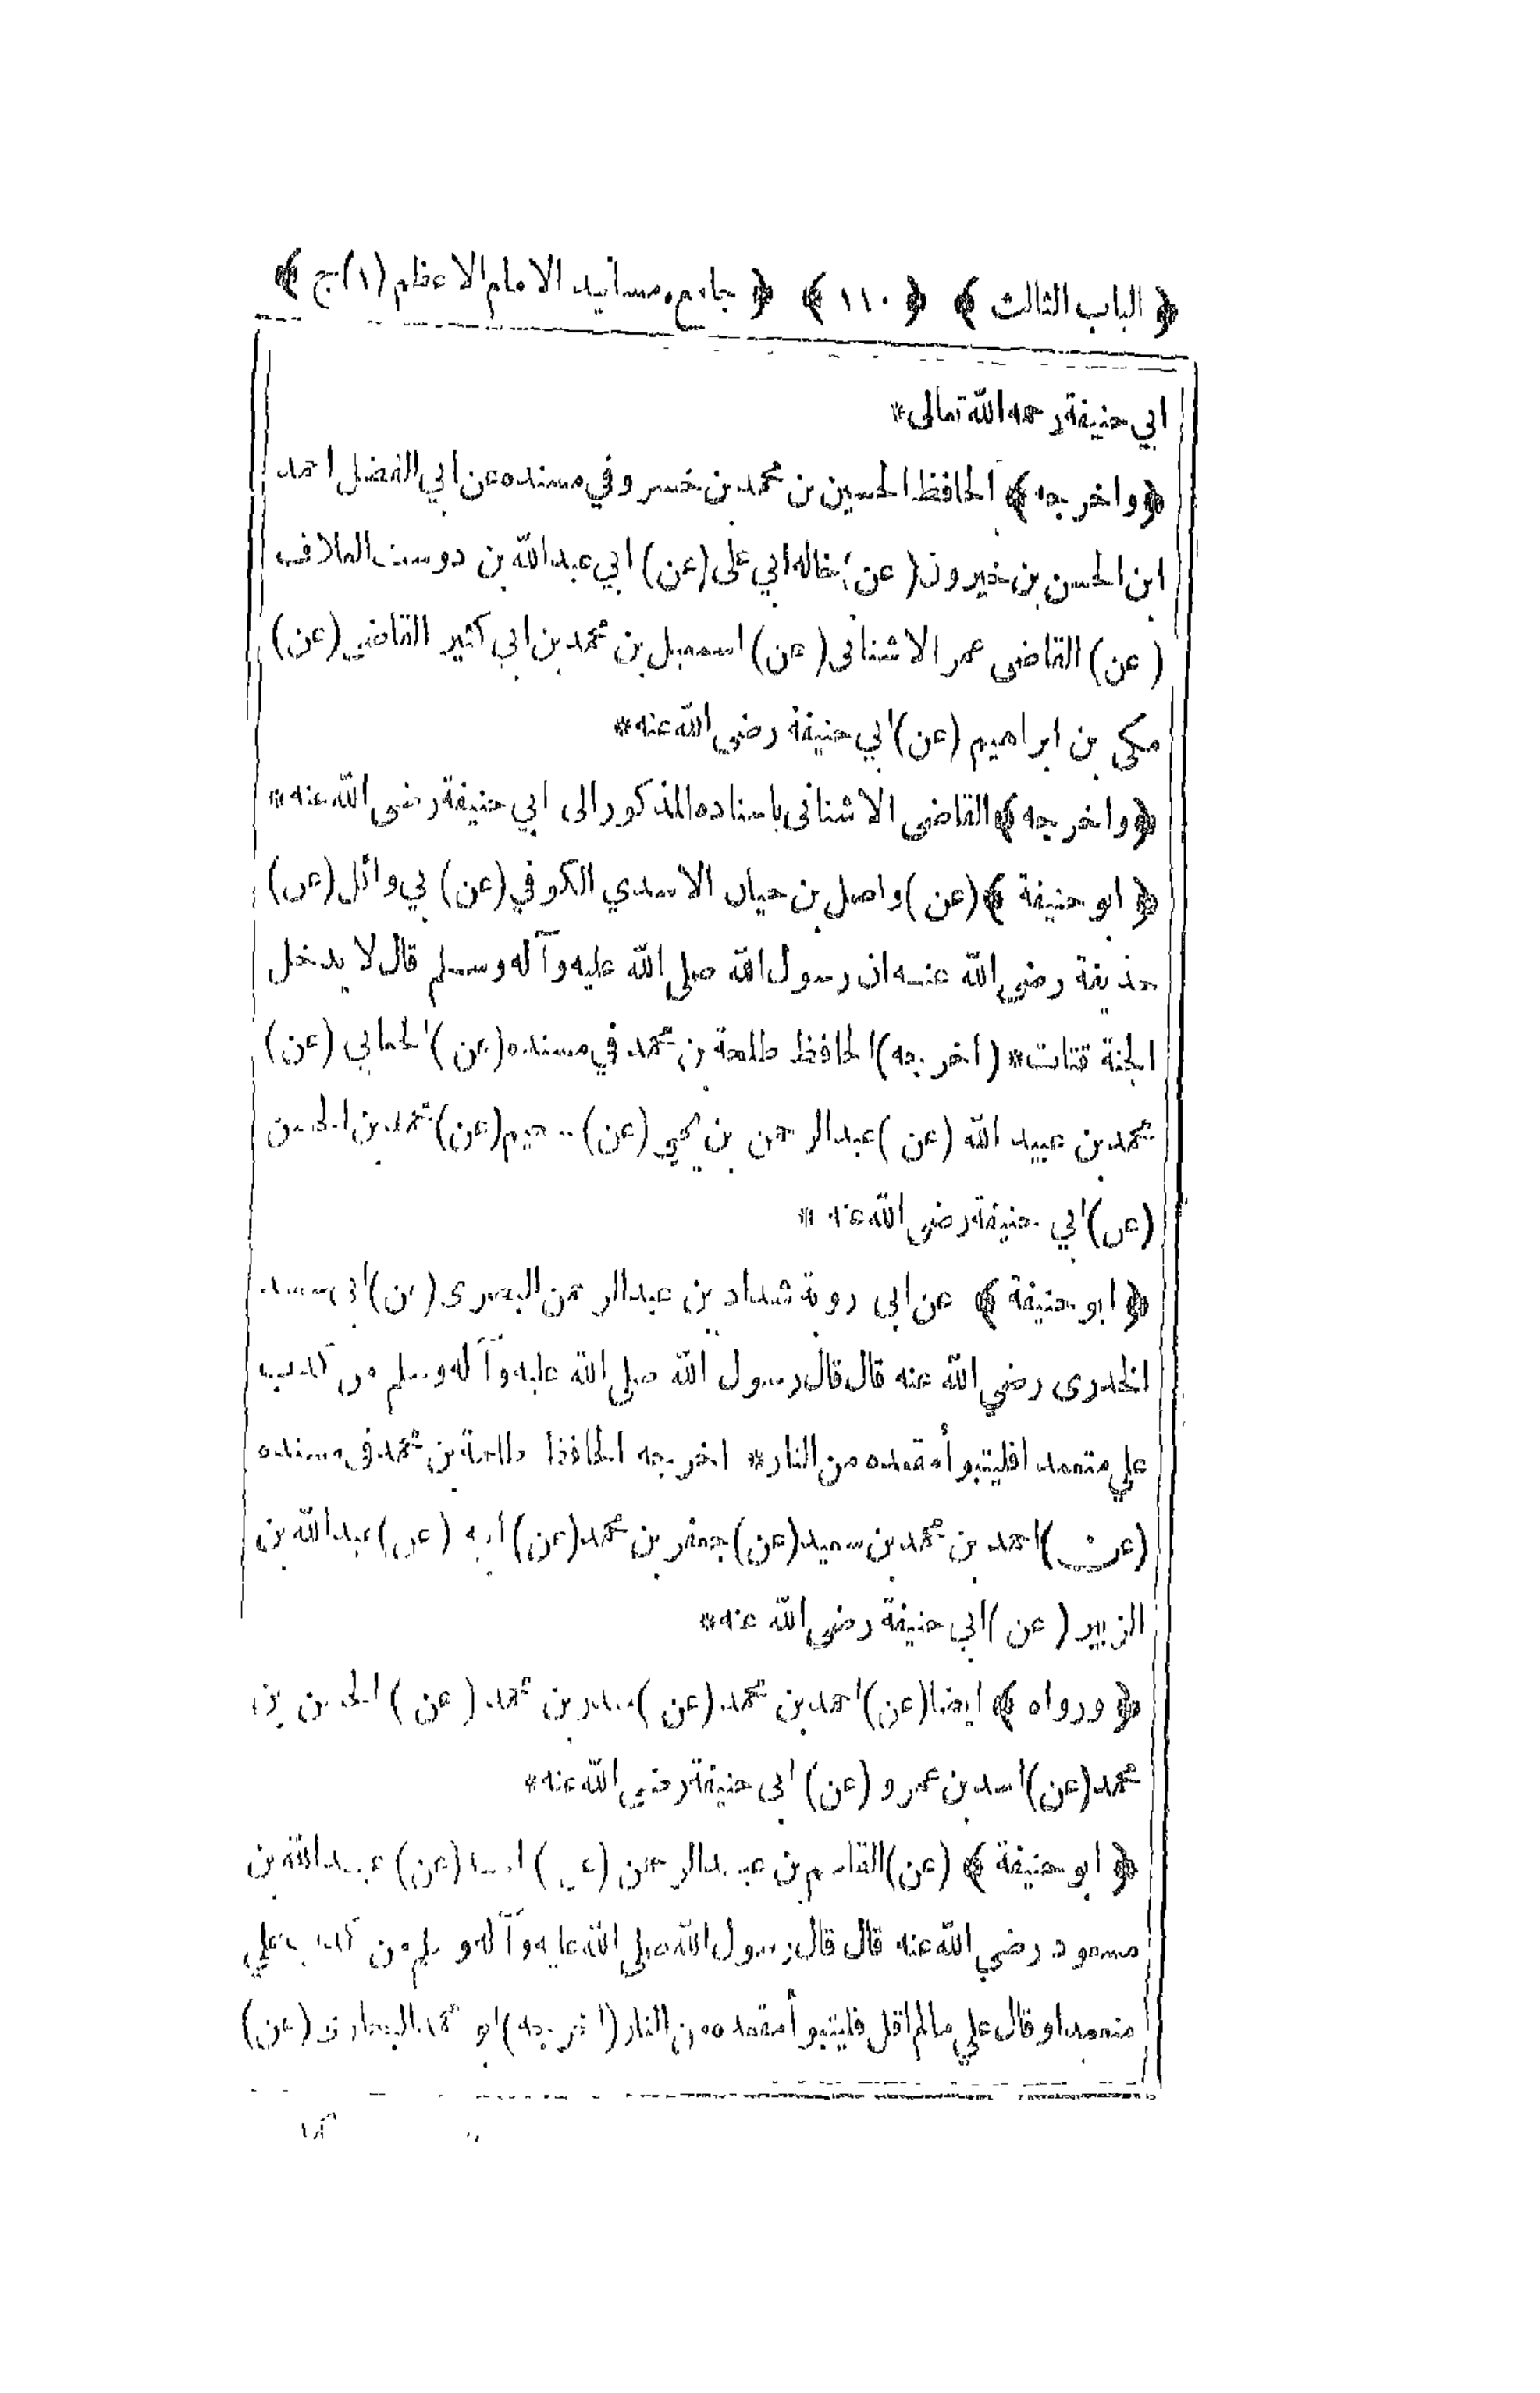 ﴿ الباب الثالث ﴾ ﴿ ١١٠ ﴾ ﴿ جامع مسانيد الامام الاعظم (١) ج ﴾
ابي حنيفة رحمه الله تعالى *
﴿ واخرجه ﴾ الحافظ الحسين بن محمد بن خسرو في مسنده عن ابي الفضل احمد
ابن الحسن بن خيرون (عن) خاله ابي علي (عن) ابي عبد الله بن دوست العلاف
(عن) القاضى عمر الاشنانى (عن) اسمعيل بن محمد بن ابي كثير القاضي (عن)
مكى بن ابراهيم (عن) ابي حنيفة رضي الله عنه *
﴿ واخرجه ﴾ القاضى الاشنانى باسناده المذكور الى ابي حنيفة رضى الله عنه *
﴿ ابو حنيفة ﴾ (عن) واصل بن حيان الاسدي الكوفي (عن) بي وائل (عن)
حذيفة رضي الله عنه ان رسول الله صلى الله عليه وآله وسلم قال لا يدخل
الجنة قتات * (اخرجه) الحافظ طلحة بن محمد في مسنده (عن) الحمابي (عن)
محمد بن عبيد الله (عن) عبد الرحمن بن يحيى (عن) (عن) محمد بن الحسن
(عن) ابي حنيفة رضى الله عنه *
﴿ ابو حنيفة ﴾ عن ابى روبة شداد بن عبد الرحمن البصرى (عن) ابى سعيد
الخدرى رضي الله عنه قال قال رسول الله صلى الله عليه وآله وسلم من كذب
علي متعمدا فليتبوأ مقعده من النار * اخرجه الحافظ طلحة بن محمد فى مسنده
(عن) احمد بن محمد بن سعيد (عن) جعفر بن محمد (عن) ابيه (عن) عبد الله بن
الزبير (عن) ابي حنيفة رضي الله عنه *
﴿ ورواه ﴾ ايضا (عن) احمد بن محمد (عن) بن محمد (عن) الحسن بن
محمد (عن) اسد بن عمرو (عن) ابى حنيفة رضي الله عنه *
﴿ ابو حنيفة ﴾ (عن) القاسم بن عبد الرحمن (عن) ابيه (عن) عبد الله بن
مسعود رضي الله عنه قال قال رسول الله صلى الله عليه وآله وسلم من كذب علي
متعمدا او قال علي مالم اقل فليتبوأ مقعده من النار (اخرجه) ابو محمد البخارى (عن)